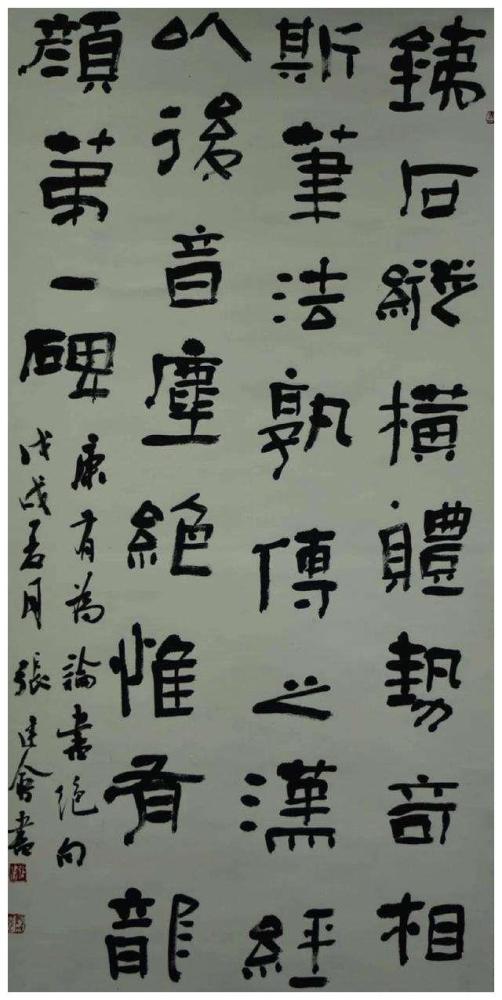 銕石縱橫體勢奇相
斯筆法孰傳之漢經
以後音塵絕惟有龍
顏第一碑
康有為論書絕句
戊戌春月 張建會書